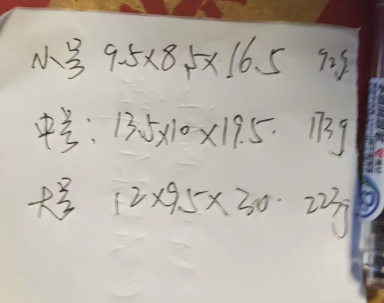 小号 9.5×8.5×16.5 92g
中号：13.5×10×19.5. 173g
大号 12×9.5×30. 223g